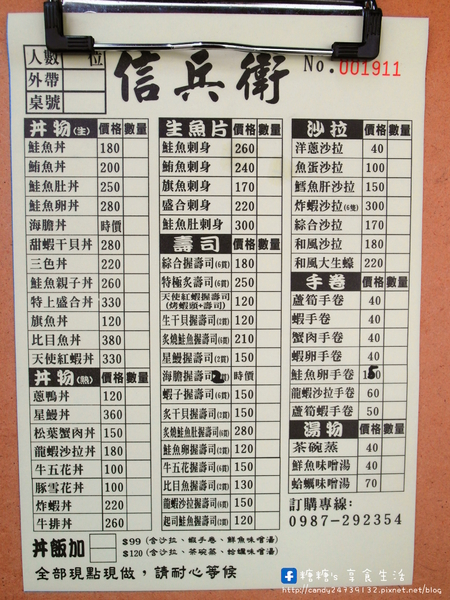 人數 位
外帶
桌號
信兵衛
No.001911
丼物(生) 價格 數量
鮭魚丼 180
鮪魚丼 200
鮭魚肚丼 250
鮭魚卵丼 280
海膽丼 時價
甜蝦干貝丼 280
三色丼 220
鮭魚親子丼 260
特上盛合丼 330
旗魚丼 120
比目魚丼 380
天使紅蝦丼 330
丼物(熟) 價格 數量
蔥鴨丼 120
星鰻丼 360
松葉蟹肉丼 150
龍蝦沙拉丼 180
牛五花丼 100
豚雪花丼 100
炸蝦丼 220
牛排丼 260
生魚片 價格 數量
鮭魚刺身 260
鮪魚刺身 240
旗魚刺身 170
盛合刺身 220
鮭魚肚刺身 300
壽司 價格 數量
綜合握壽司(6貫) 180
特極握壽司(6貫) 250
天使紅蝦握壽司 120
(烤蝦頭+壽司)
生干貝握壽司(2貫) 120
炙燒鮭魚肚握壽司(6貫) 210
星鰻握壽司(2貫) 120
海膽握壽司(2貫) 時價
蝦子握壽司(6貫) 150
炙干貝握壽司(2貫) 150
炙燒鮭魚肚握壽司(2貫) 280
鮭魚卵握壽司(2貫) 120
牛五花握壽司(6貫) 150
比目魚握壽司(2貫) 130
龍蝦沙拉握壽司(6貫) 150
起司鮭魚握壽司(2貫) 120
沙拉 價格 數量
洋蔥沙拉 40
魚蛋沙拉 100
鱈魚肝沙拉 150
炸蝦沙拉(6隻) 300
綜合沙拉 170
和風沙拉 180
和風大生蠔 220
手卷 價格 數量
蘆筍手卷 40
蝦手卷 40
蟹肉手卷 40
蝦卵手卷 40
鮭魚卵手卷
龍蝦沙拉手卷 60
蘆筍蝦手卷 50
湯物 價格 數量
茶碗蒸 40
鮮魚味噌湯 40
蛤蠣味噌湯 70
訂購專線:
0987-292354
丼飯加 $99(含沙拉、蝦手卷、鮮魚味噌湯)
$120(含沙拉、茶碗蒸、蛤蠣味噌湯)
全部現點現做，請耐心等候
糖糖's 享食生活
http://candy24739132.pixnet.net/blog